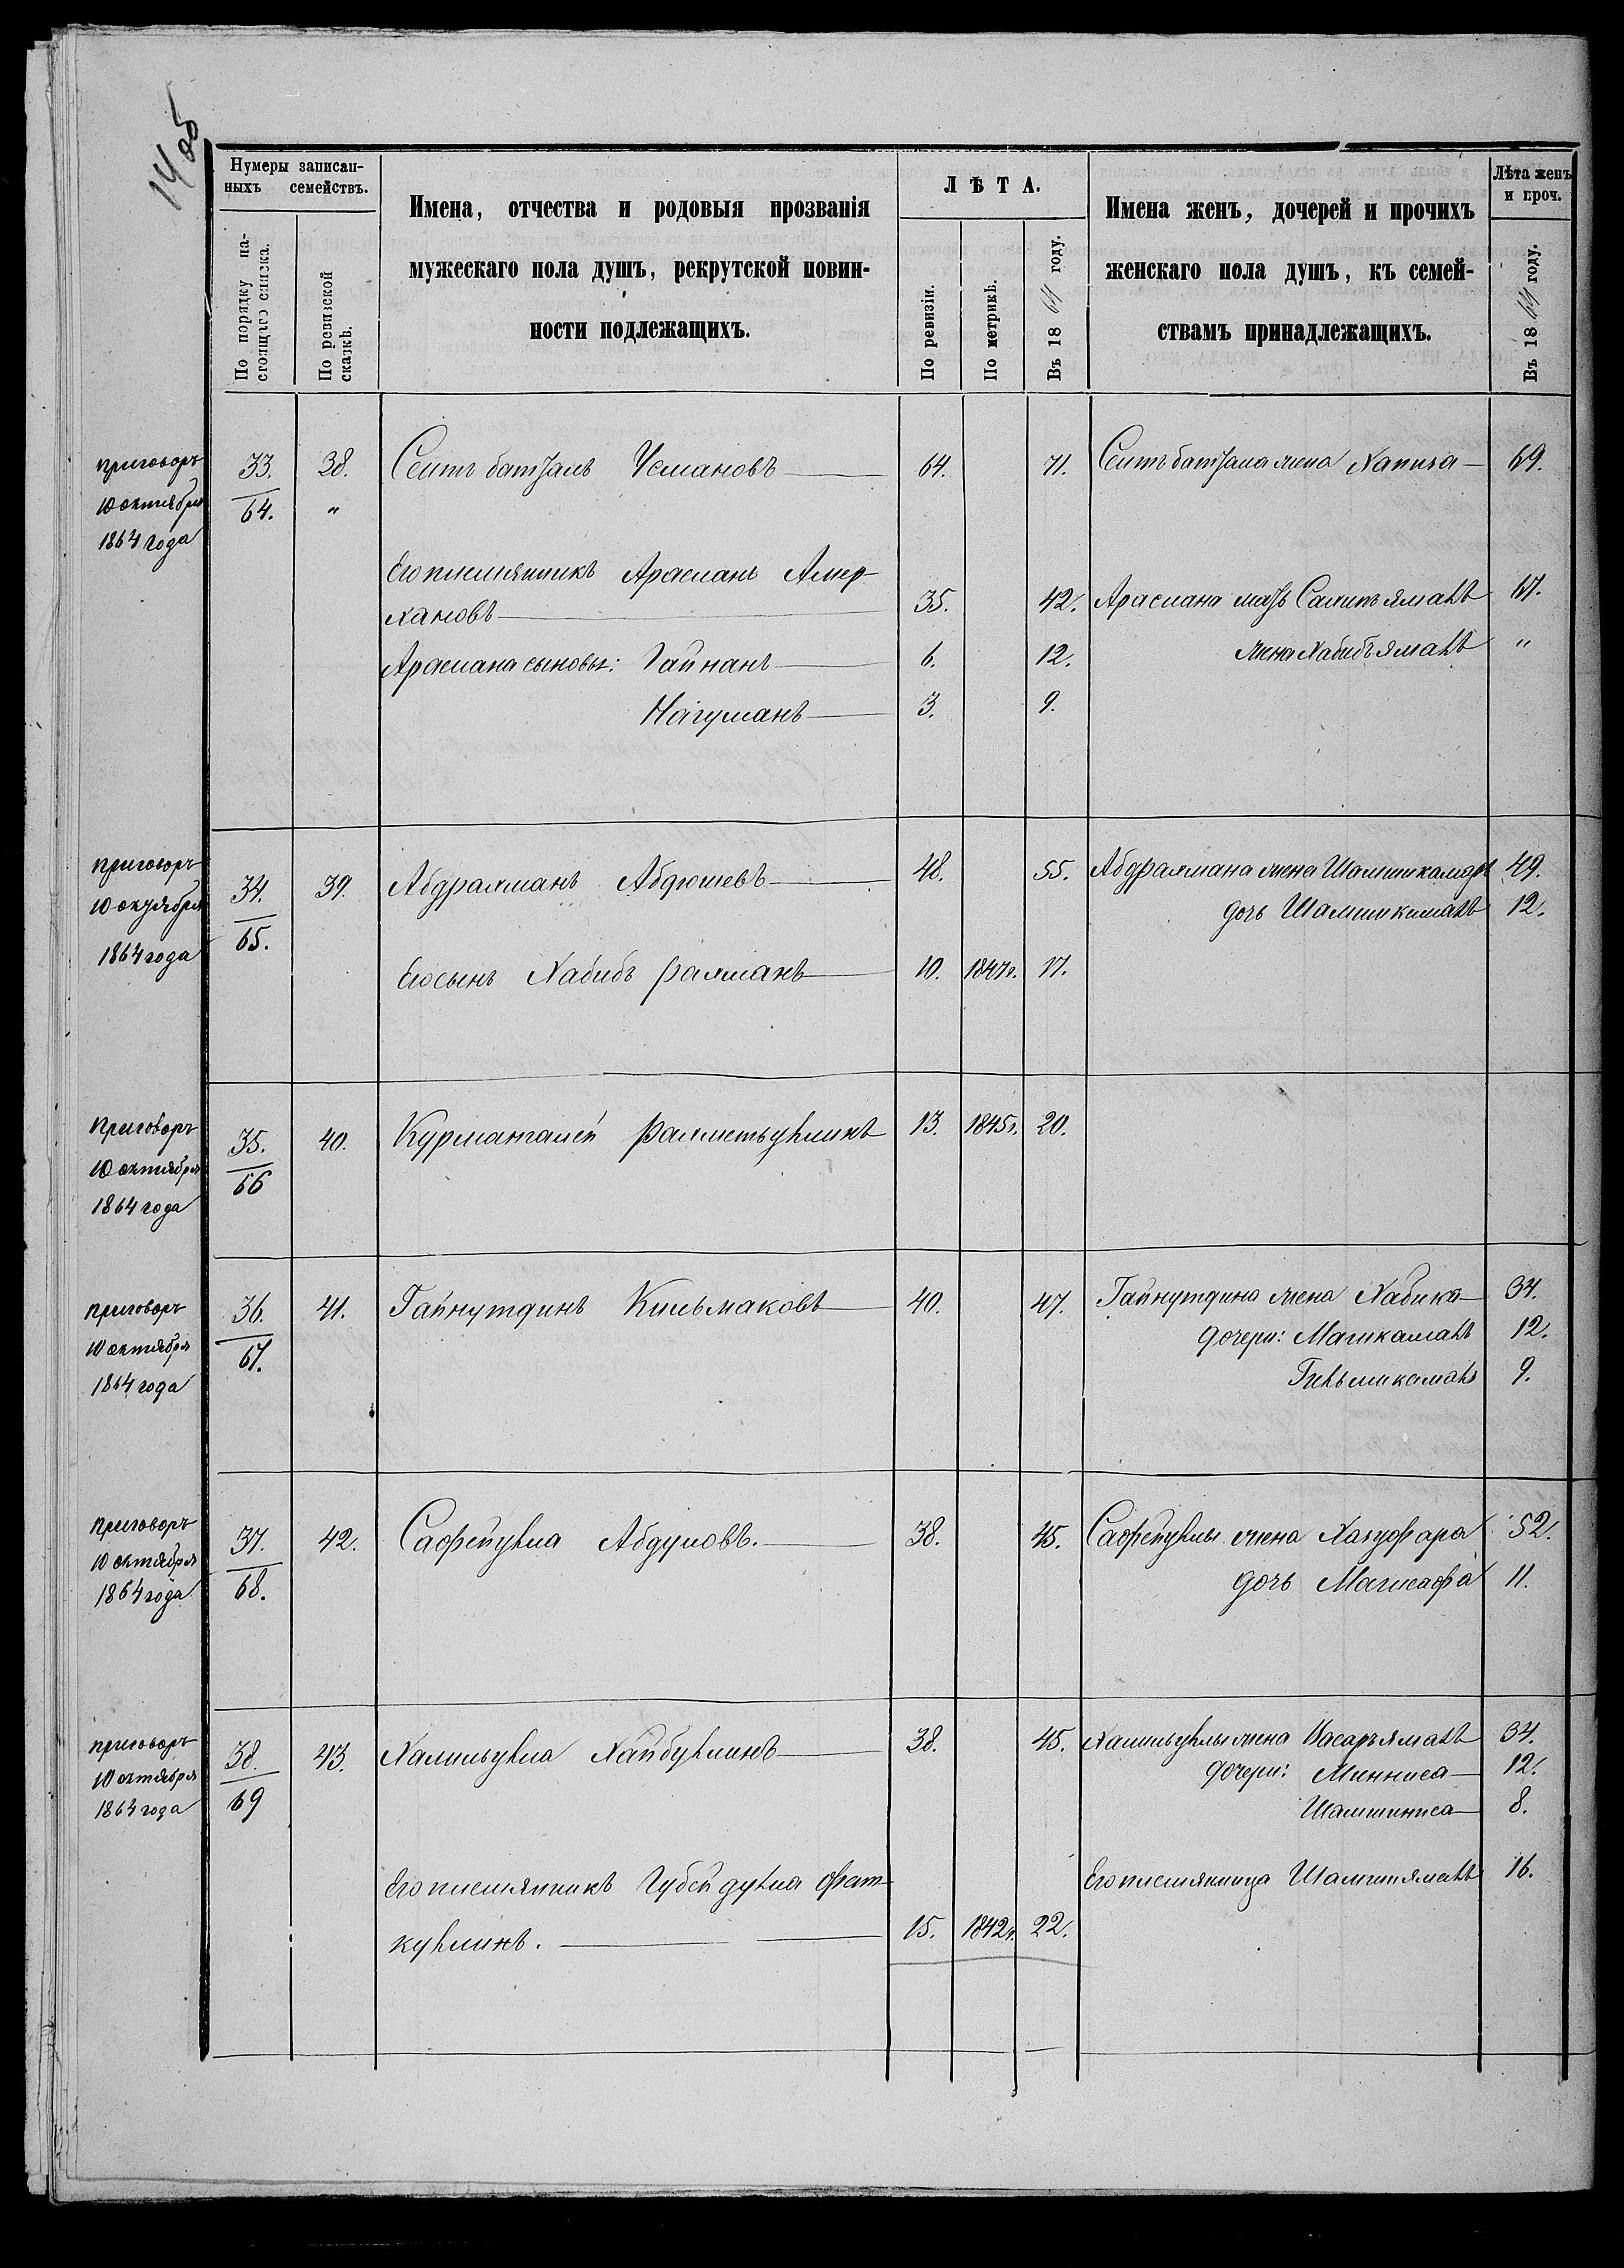 14об
Нумеры записан-
ныхъ семействъ.
По порядку на-
стоящаго списка.
По ревизской
сказкѣ.
Имена, отчества и родовыя прозванія
мужескаго пола душъ, рекрутской повин-
ности подлежащихъ.
ЛѢТА.
По ревизіи.
По метрикѣ.
Въ 1864 году.
Имена женъ, дочерей и прочихъ
женскаго пола душъ, къ семей-
ствамъ принадлежащихъ.
Лѣта женъ
и проч.
Въ 1864 году.
приговоръ
10 октября
1864 года
33. 38. Сеитъ батталъ Усмановъ 64. 71. Сеитъ баттала жена Хатиза 69.
64. "
Его племянникъ Арасланъ Амер-
хановъ 35. 42. Араслана мать 67.
Араслана сыновья: Гайнанъ 6. 12. жена Хабибъ ямалъ "
Нагуманъ 3. 9.
приговоръ
10 октября
1864 года
34. 39. Абдрахманъ Абдюшевъ 48. 55. Абдрахмана жена Шамсикамаръ 49.
65. дочь Шамсикамалъ 12.
Его сынъ Хабибъ рахманъ 10. 1847г. 17.
приговоръ
10 октября
1864 года
35. 40. Курмангалей Рахметуллинъ 13. 1845г. 20.
66
приговоръ
10 октября
1864 года
36. 41. Гайнутдинъ Кильмаковъ 40. 47. Гайнутдина жена Хабика 34.
67. дочери: Магикамалъ 12.
Гильмикамалъ 9.
приговоръ
10 октября
1864 года
37. 42. Сафейулла Абдуловъ. 38. 45. Сафейуллы жена 52.
68. дочь Магисафа 11.
приговоръ
10 октября
1864 года
38. 43. Халильулла Хайбуллинъ 38. 45. Халильуллы жена 34.
69 дочери: Минниса 12.
Шамсиниса 8.
Его племянникъ Губейдулла Фат- Его племянница Шамсиямалъ 16.
куллинъ. 15. 1842г. 22.